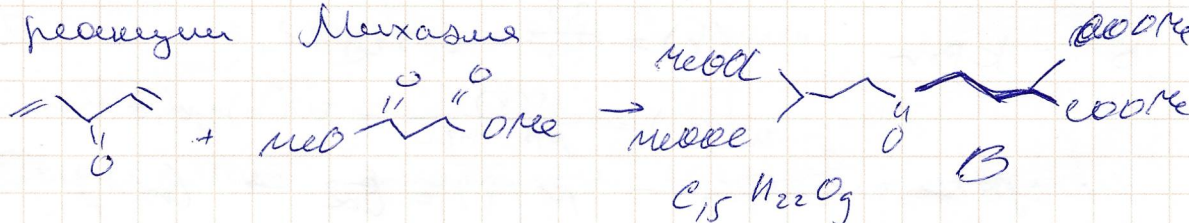 реакции Михаэля
O
+
MeO
O
O
OMe
→
MeOOC
MeOOC
O
COOMe
COOMe
B
C₁₅H₂₂O₉